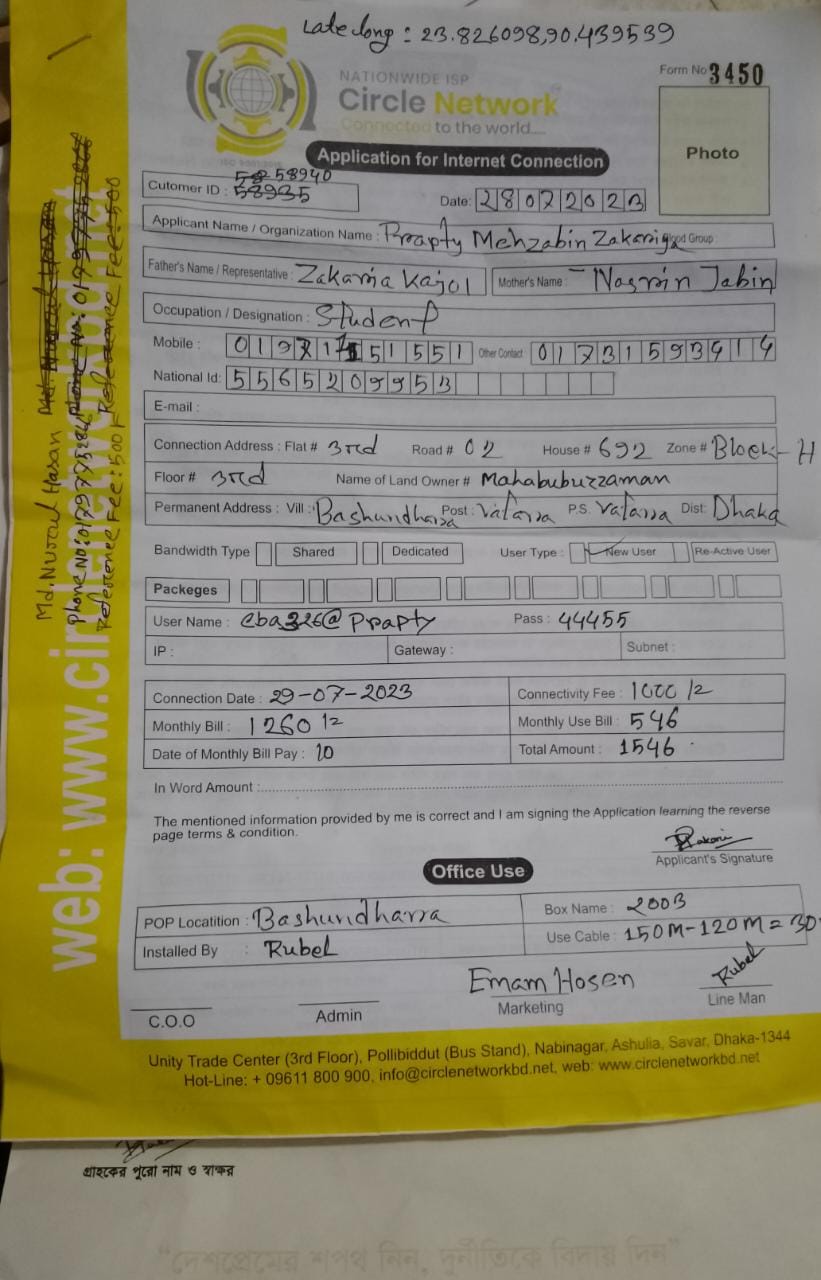 Late long : 23.826098,90.439539
NATIONWIDE ISP
Circle Network
Connected to the world....
ISO 9001:2015
Form No 3450
Photo
Application for Internet Connection
58940
Cutomer ID : 58935
Date: 28072023
Applicant Name / Organization Name : Prapty Mehzabin Zakariya Blood Group :
Father's Name / Representative : Zakaria Kajol Mother's Name : Nasrin Jabin
Occupation / Designation : Student
Mobile : Other Contact : 01731593414
National Id: 5565209953
E-mail :
Connection Address : Flat # 3rd Road # 02 House # 692 Zone # Block-H
Floor # 3rd Name of Land Owner # Mahabubuzzaman
Permanent Address : Vill : Bashundhara Post : Vatara P.S. Vatara Dist: Dhaka
Bandwidth Type Shared Dedicated User Type : New User Re-Active User
Packeges
User Name : cba326@Prapty Pass : 44455
IP : Gateway : Subnet :
Connection Date : 29-07-2023 Connectivity Fee : 1000/2
Monthly Bill : 1260/2 Monthly Use Bill : 546
Date of Monthly Bill Pay : 10 Total Amount : 1546
In Word Amount :
The mentioned information provided by me is correct and I am signing the Application learning the reverse
page terms & condition.
Applicant's Signature
Office Use
POP Locatition : Bashundharra Box Name : 2003
Installed By : Rubel Use Cable : 150M-120M=30
Emam Hosen Rubel
C.O.O Admin Marketing Line Man
Unity Trade Center (3rd Floor), Pollibiddut (Bus Stand), Nabinagar, Ashulia, Savar, Dhaka-1344
Hot-Line: + 09611 800 900, info@circlenetworkbd.net, web: www.circlenetworkbd.net
web: www.circlenetworkbd.net
Md. Nurul Hasan
Phone No:
Reference Fee: 500
Reference Fee: 500
গ্রাহকের পুরো নাম ও স্বাক্ষর
"দেশপ্রেমের শপথ নিন, দুর্নীতিকে বিদায় দিন"